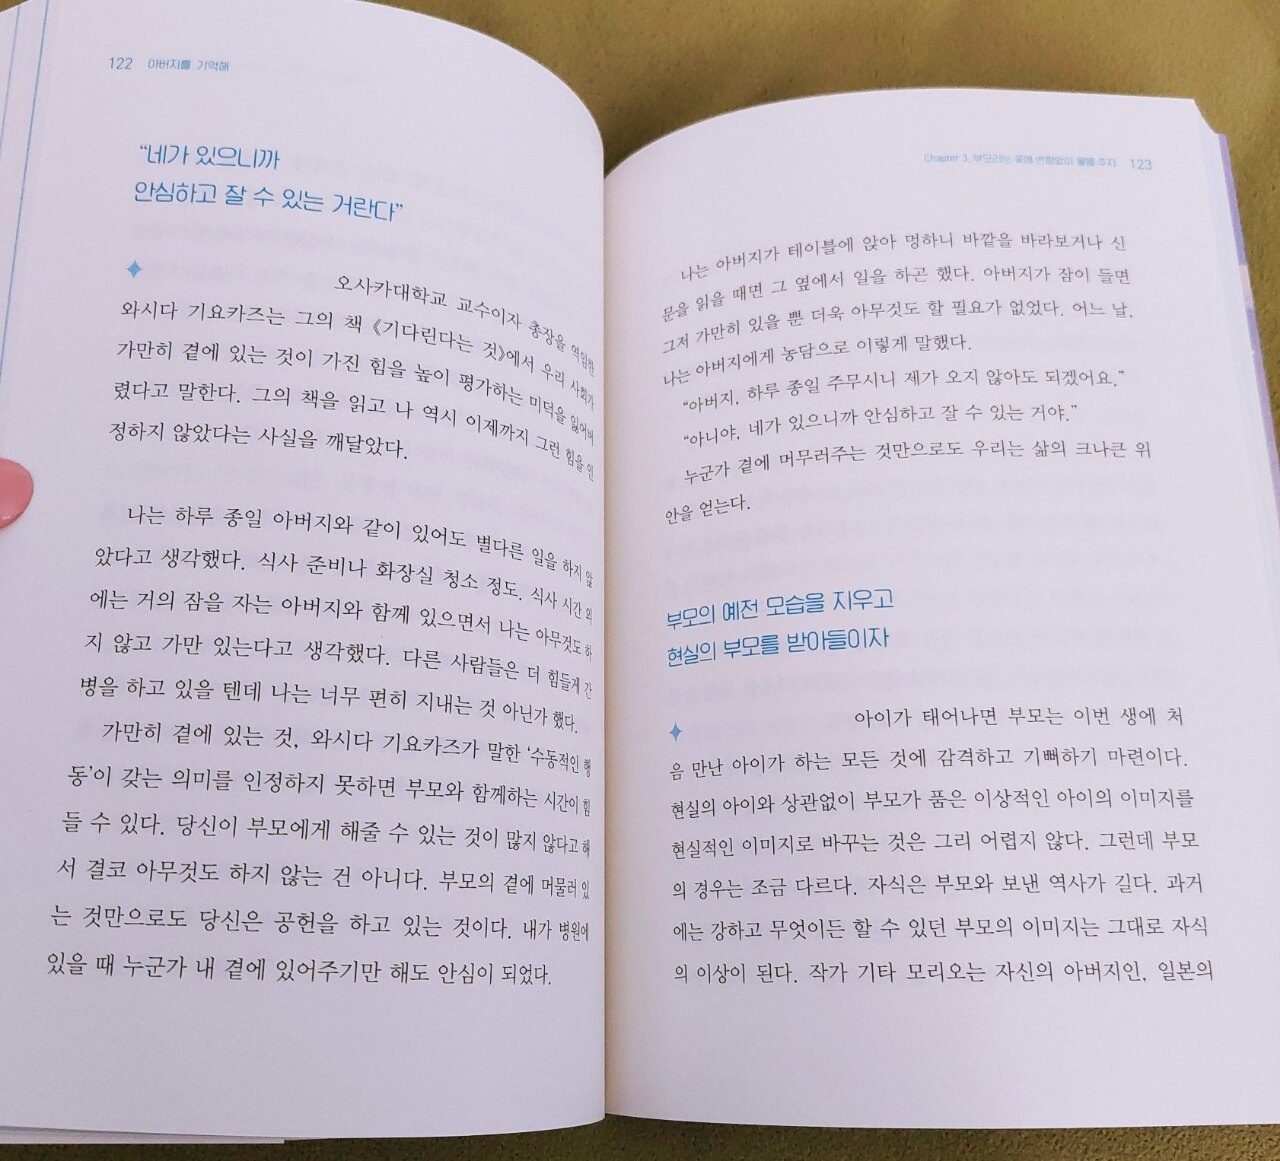 122 아버지를 기억해
“네가 있으니까
안심하고 잘 수 있는 거란다”
오사카대학교 교수이자 총장을 역임한
와시다 기요카즈는 그의 책 《기다린다는 것》에서 우리 사회가
가만히 곁에 있는 것이 가진 힘을 높이 평가하는 미덕을 잃어버
렸다고 말한다. 그의 책을 읽고 나 역시 이제까지 그런 힘을 인
정하지 않았다는 사실을 깨달았다.
나는 하루 종일 아버지와 같이 있어도 별다른 일을 하지 않
았다고 생각했다. 식사 준비나 화장실 청소 정도. 식사 시간 외
에는 거의 잠을 자는 아버지와 함께 있으면서 나는 아무것도 하
지 않고 가만 있는다고 생각했다. 다른 사람들은 더 힘들게 간
병을 하고 있을 텐데 나는 너무 편히 지내는 것 아닌가 했다.
가만히 곁에 있는 것, 와시다 기요카즈가 말한 ‘수동적인 행
동’이 갖는 의미를 인정하지 못하면 부모와 함께하는 시간이 힘
들 수 있다. 당신이 부모에게 해줄 수 있는 것이 많지 않다고 해
서 결코 아무것도 하지 않는 건 아니다. 부모의 곁에 머물러 있
는 것만으로도 당신은 공헌을 하고 있는 것이다. 내가 병원에
있을 때 누군가 내 곁에 있어주기만 해도 안심이 되었다.
Chapter 3_부모라는 꽃에 변함없이 물을 주자 123
나는 아버지가 테이블에 앉아 멍하니 바깥을 바라보거나 신
문을 읽을 때면 그 옆에서 일을 하곤 했다. 아버지가 잠이 들면
그저 가만히 있을 뿐 더욱 아무것도 할 필요가 없었다. 어느 날,
나는 아버지에게 농담으로 이렇게 말했다.
“아버지, 하루 종일 주무시니 제가 오지 않아도 되겠어요.”
“아니야, 네가 있으니까 안심하고 잘 수 있는 거야.”
누군가 곁에 머무러주는 것만으로도 우리는 삶의 크나큰 위
안을 얻는다.
부모의 예전 모습을 지우고
현실의 부모를 받아들이자
아이가 태어나면 부모는 이번 생에 처
음 만난 아이가 하는 모든 것에 감격하고 기뻐하기 마련이다.
현실의 아이와 상관없이 부모가 품은 이상적인 아이의 이미지를
현실적인 이미지로 바꾸는 것은 그리 어렵지 않다. 그런데 부모
의 경우는 조금 다르다. 자식은 부모와 보낸 역사가 길다. 과거
에는 강하고 무엇이든 할 수 있던 부모의 이미지는 그대로 자식
의 이상이 된다. 작가 기타 모리오는 자신의 아버지인, 일본의